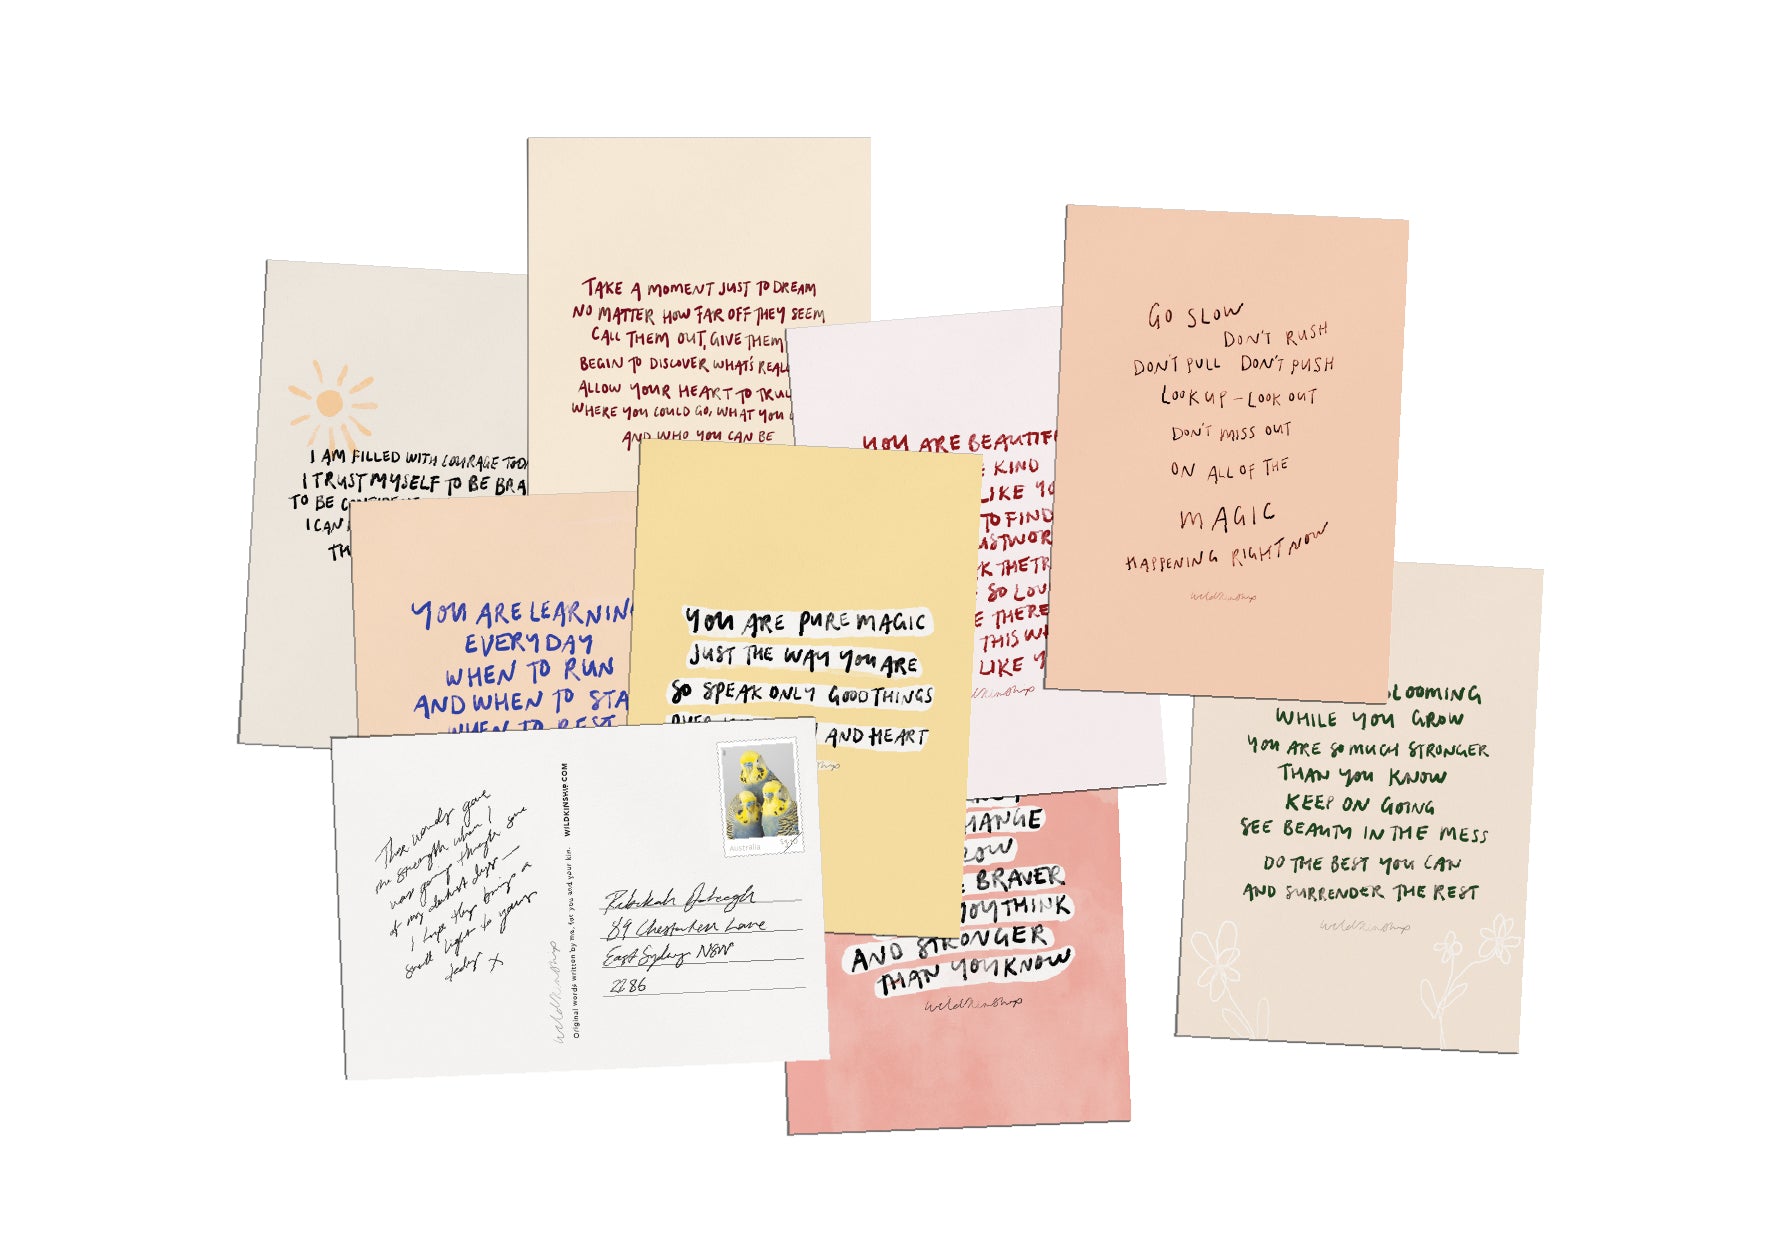 TAKE A MOMENT JUST TO DREAM
NO MATTER HOW FAR OFF THEY SEEM
CALL THEM OUT, GIVE THEM
BEGIN TO DISCOVER WHAT'S
ALLOW YOUR HEART TO
WHERE YOU COULD GO, WHAT YOU
AND WHO YOU CAN BE
I AM FILLED WITH COURAGE
I TRUST MYSELF TO BE
TO BE
I CAN
YOU ARE BEAUTIF
KIND
LIKE
TO FIND
THE
SO
THERE
THIS
LIKE
wildkinship
GO SLOW
DON'T RUSH
DON'T PULL DON'T PUSH
LOOK UP - LOOK OUT
DON'T MISS OUT
ON ALL OF THE
MAGIC
HAPPENING RIGHT NOW
wildkinship
YOU ARE LEARNIN
EVERYDAY
WHEN TO RUN
AND WHEN TO STA
WHEN TO REST
YOU ARE PURE MAGIC
JUST THE WAY YOU ARE
SO SPEAK ONLY GOOD THINGS
OVER
AND HEART
LOOMING
WHILE YOU GROW
YOU ARE SO MUCH STRONGER
THAN YOU KNOW
KEEP ON GOING
SEE BEAUTY IN THE MESS
DO THE BEST YOU CAN
AND SURRENDER THE REST
wildkinship
HANGE
ROW
BRAVER
YOU THINK
AND STRONGER
THAN YOU KNOW
wildkinship
These words gave
me strength when I
was going through some
of my darkest days —
I hope they bring a
small light to yours
x
wildkinship
Original words written by me, for you and your kin. WILDKINSHIP.COM
Australia
$1.10
Rebekah
89 Lane
East Sydney NSW
2286